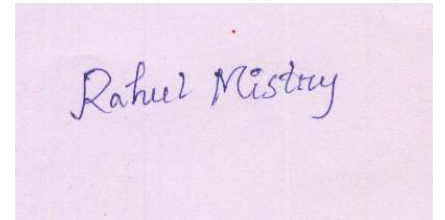 Rahul Mistry